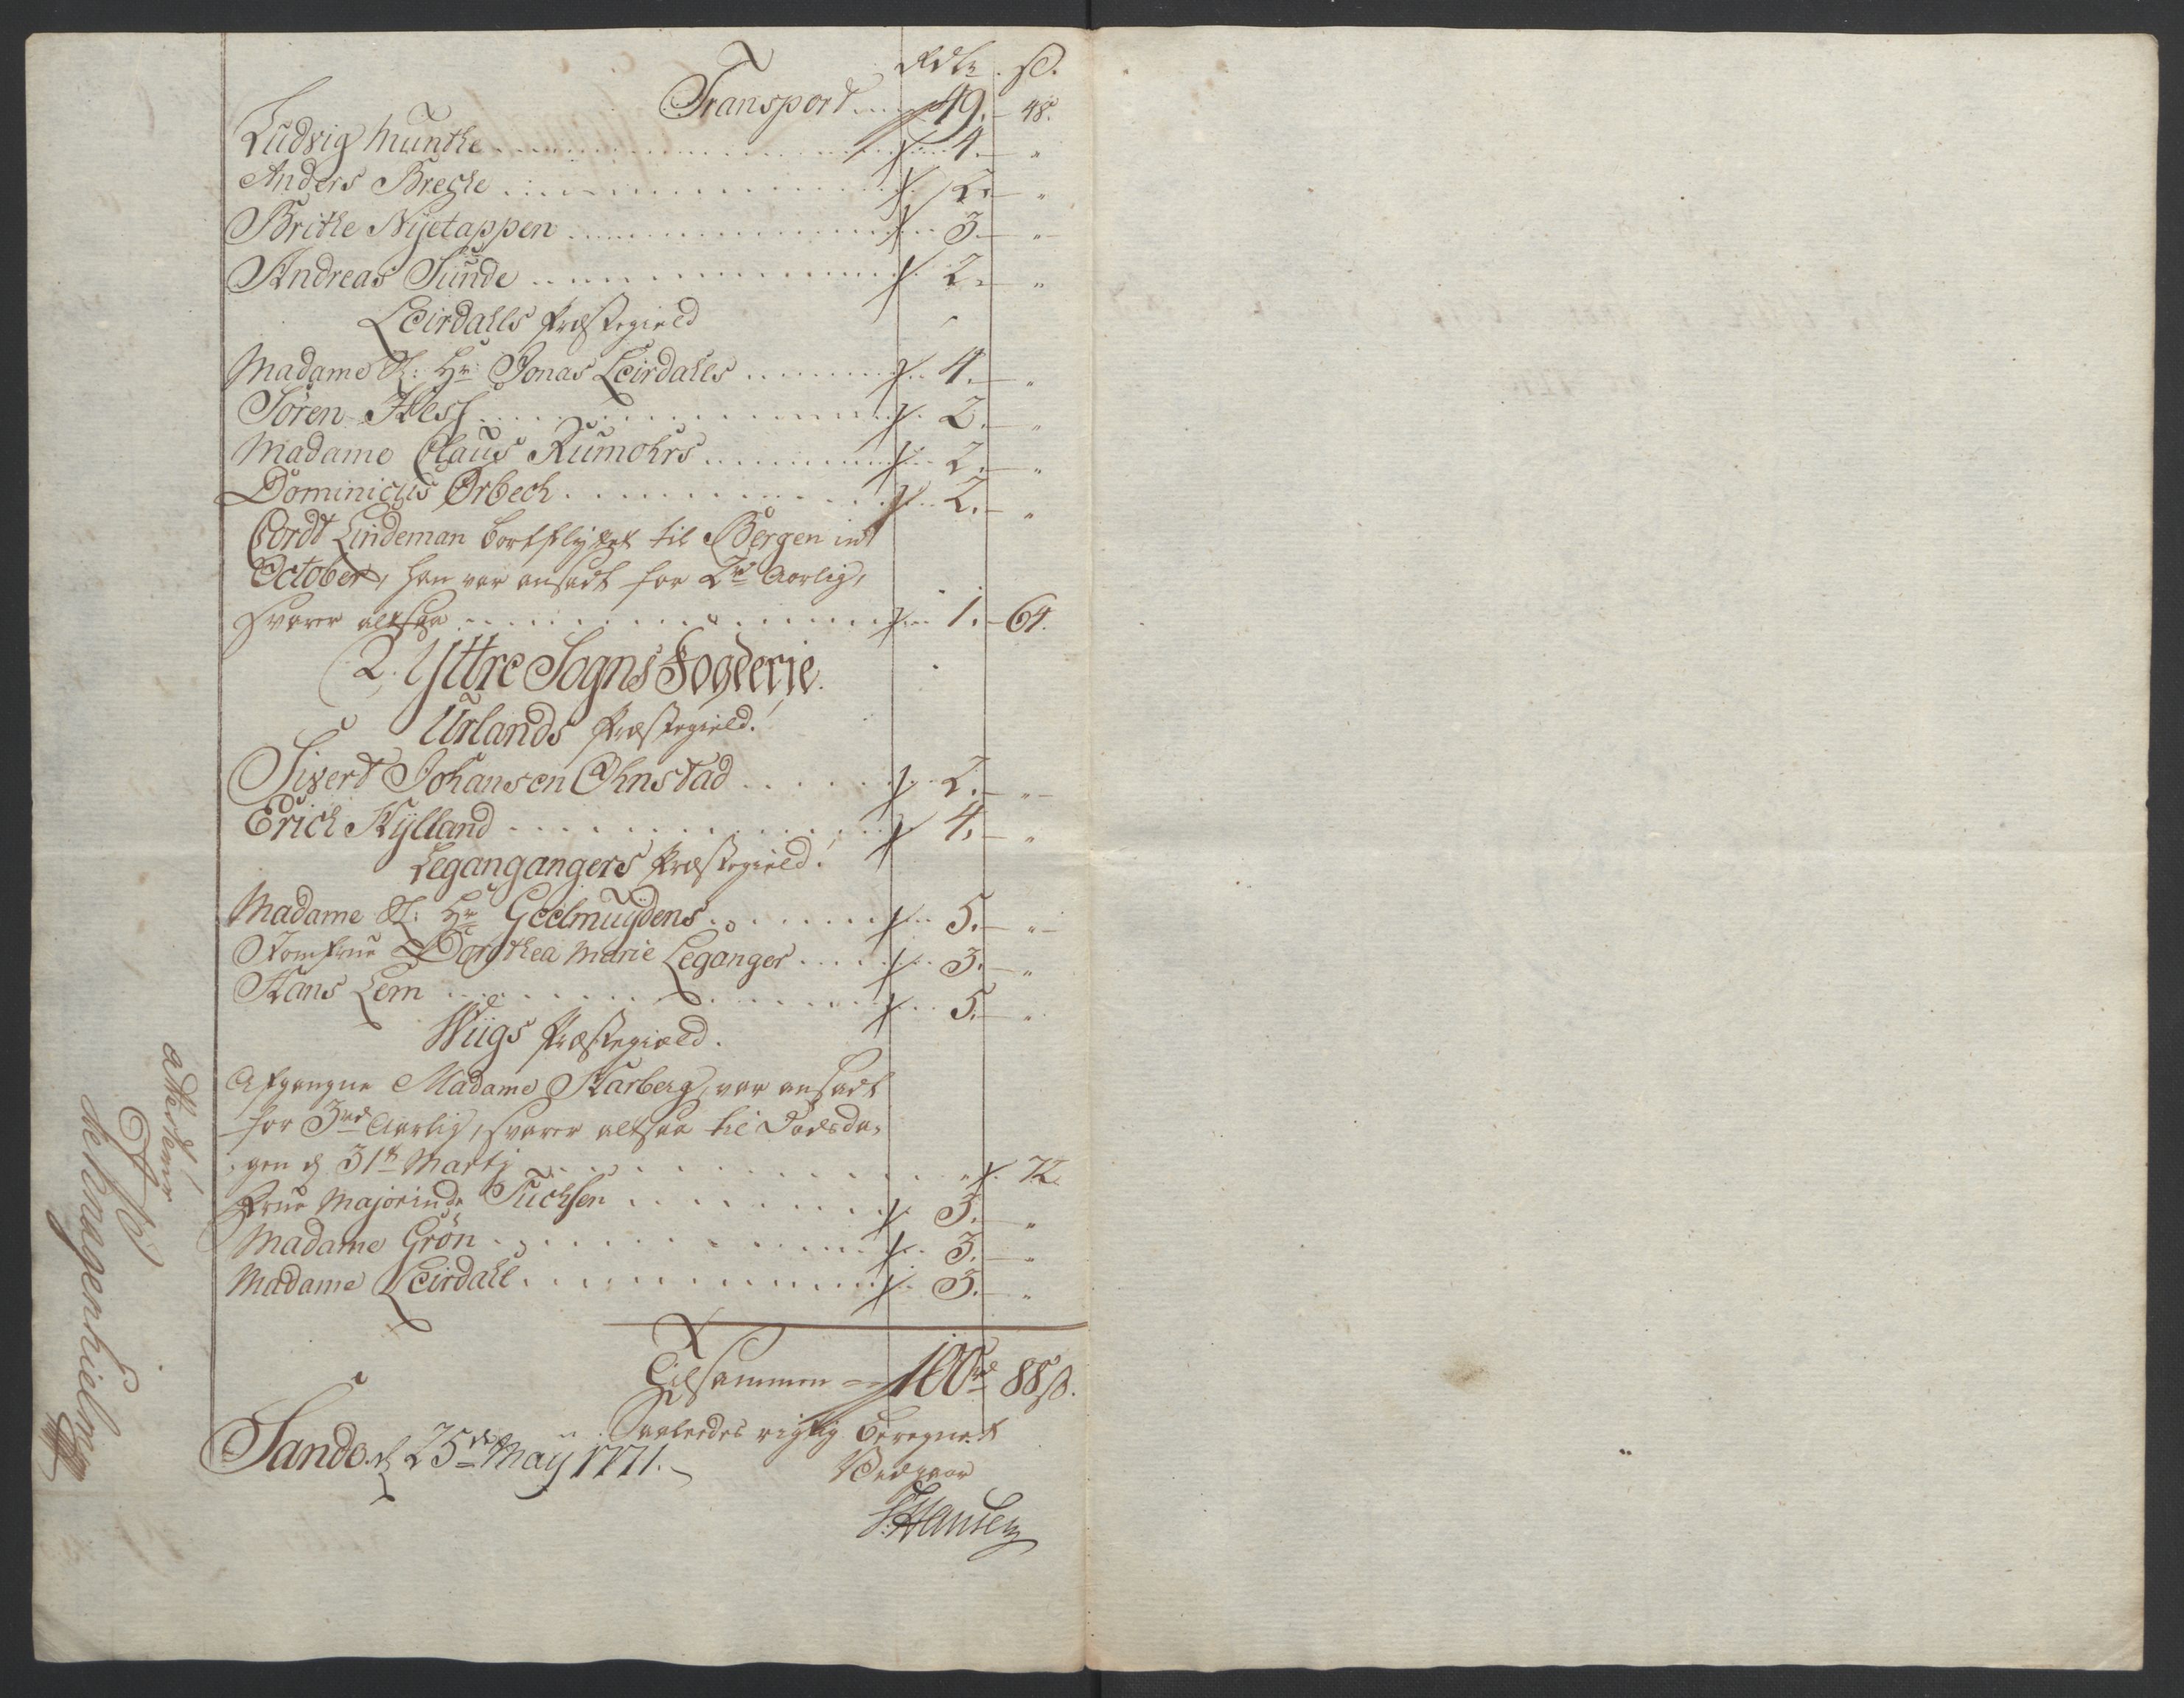 Rdlr. ß.
Transport . . . 49. - 48.
Ludvig Munthe . . . 4. - "
Anders Breche . . . 2. - "
Brithe Nyetappen . . . 3. - "
Andreas Sunde . . . 2. - "
Leirdahls Præstegield
Madame Sl: Hr: Jonas Leirdahls . . . 4. - "
Sören Hess . . . 2. - "
Madame Claus Rumohrs . . . 2. - "
Dominicus Ørbech . . . 2. - "
Cordt Lindeman bortflyttet til Bergen in
October, han var ansadt for 2rd Aarlig,
svarer altsaa . . . 1. - 64.
2. Yttre Sogns Fogderie.
Urlands Præstegield.
Sivert Johansen Ohnstad . . . 2. - "
Erich Rylland . . . 4. - "
Legangangers Præstegield.
Madame Sl: Hr Geelmuÿdens . . . 5. - "
Jomfrue Dorothea Marie Leganger . . . 3. - "
Hans Lem . . . 5. - "
Wiigs Præstegield.
Afgangne Madame Harberg, var ansadt
for 3rd Aarlig, svarer altsaa til Dødsda-
gen d 31te Martj . . . " 72.
Frue Majorinde Tuchsen . . . 3. - "
Madame Grön . . . 3. - "
Madame Leirdahl . . . 3. - "
Tilsammen 100rd 88ß.
Saaledes rigtig beregnet
Sande d 25de Maÿ 1771.
Hansen
atterterer
de Knagenhielm